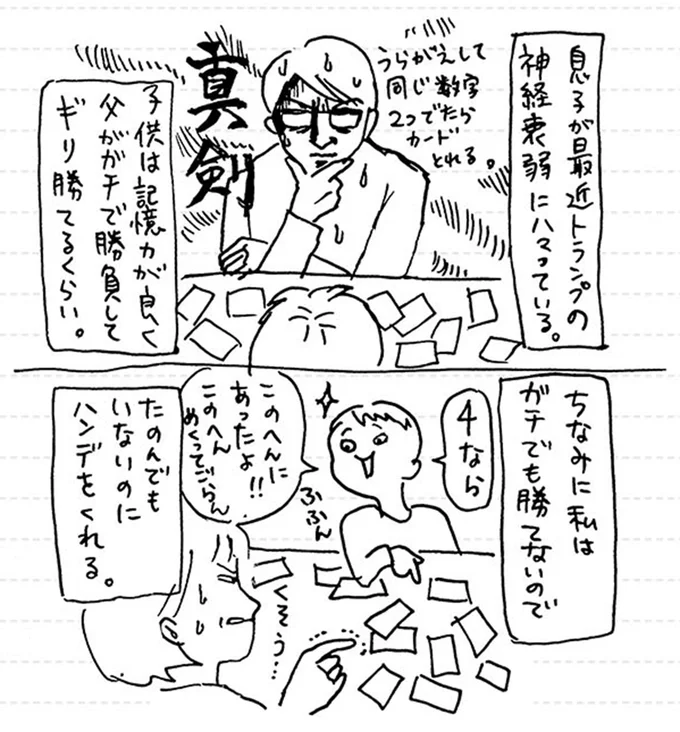 息子が最近トランプの
神経衰弱にハマっている。
うらがえして
同じ数字
2つでたら
カード
とれる。
真剣
子供は記憶力が良く
父がガチで勝負して
ギリ勝てるくらい。
ちなみに私は
ガチでも勝てないので
4なら
このへんに
あったよ!!
このへん
めくってごらん
ふふん
くそう…
たのんでも
いないのに
ハンデをくれる。